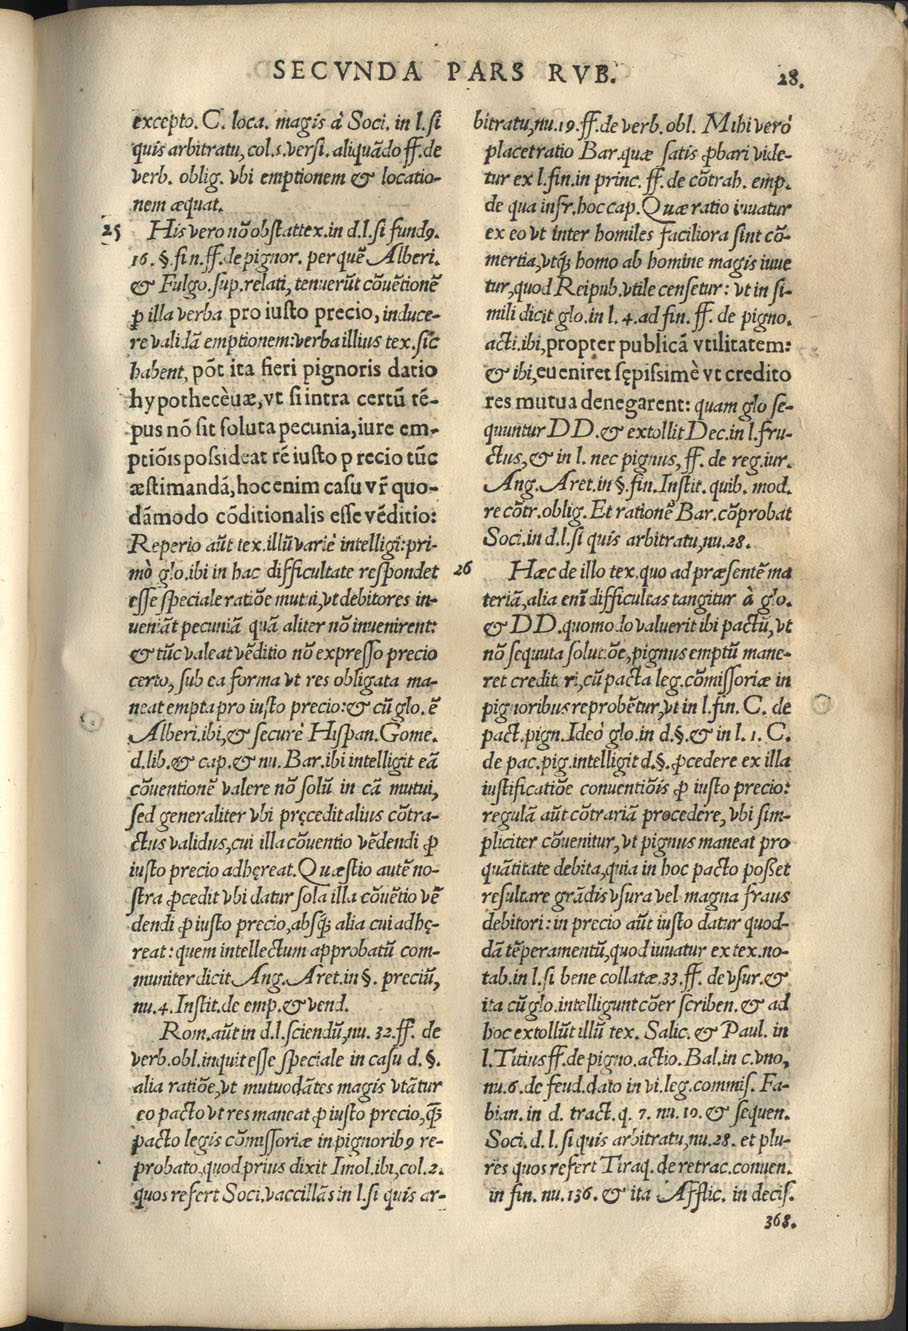 SECVNDA PARS RVB.
28.
excepto. C. loca. magis à Soci. in l. si
quis arbitratu, col. 5. versi. aliquãdo ff. de
verb. oblig. vbi emptionem & locatio-
nem æquat.
25 His vero nõ obstat tex. in d. l. si fundꝰ.
16. §. fin. ff. de pignor. per quẽ Alberi.
& Fulgo. sup. relati, tenuerũt cõuẽtionẽ
ꝑ illa verba pro iusto precio, induce-
re validã emptionem: verba illius tex. sic
habent, põt ita fieri pignoris datio
hypothecèuæ, vt si intra certũ tẽ-
pus nõ sit soluta pecunia, iure em-
ptiõis possideat rẽ iusto precio tũc
æstimandã, hoc enim casu vr̃ quo-
dãmodo cõditionalis esse vẽditio:
Reperio aũt tex. illũ variè intelligi: pri-
mò glo. ibi in hac difficultate respondet
esse speciale ratiõe mutui, vt debitores in-
ueniãt pecuniã quã aliter nõ inuenirent:
& tũc valeat vẽditio nõ expresso precio
certo, sub ea forma vt res obligata ma-
neat empta pro iusto precio: & cũ glo. ẽ
Alberi. ibi, & securè Hispan. Gome.
d. lib. & cap. & nu. Bar. ibi intelligit eã
cõuentionẽ valere nõ solũ in cã mutui,
sed generaliter vbi pręcedit alius cõtra-
ctus validus, cui illa cõuentio vẽdendi ꝑ
iusto precio adhęreat. Quæstio autẽ no-
stra ꝓcedit vbi datur sola illa cõuẽtio vẽ
dendi ꝑ iusto precio, absq̃ alia cui adhę-
reat: quem intellectum approbatũ com-
muniter dicit Ang. Aret. in §. preciũ,
nu. 4. Instit. de emp. & vend.
Rom. aũt in d. l. sciendũ, nu. 32. ff. de
verb. obl. inquit esse speciale in casu d. §.
alia ratiõe, vt mutuo dãtes magis vtãtur
eo pacto vt res maneat ꝑ iusto precio, q̃
pacto legis cõmissoriæ in pignoribꝰ re-
probato, quod prius dixit Imol. ibi, col. 2.
quos refert Soci. vaccillãs in l. si quis ar-
bitratu, nu. 19. ff. de verb. obl. Mihi verò
placet ratio Bar. quæ satis ꝓbari vide-
tur ex l. fin. in princ. ff. de cõtrah. emp.
de qua infr. hoc cap. Quæ ratio iuuatur
ex eo vt inter homiles faciliora sint cõ-
mertia, vtq̃ homo ab homine magis iuue
tur, quod Reipub. vtile censetur: vt in si-
mili dicit glo. in l. 4. ad fin. ff. de pigno.
acti. ibi, propter publicã vtilitatem:
& ibi, eueniret sępissimè vt credito
res mutua denegarent: quam glo se-
quuntur DD. & extollit Dec. in l. fru-
ctus, & in l. nec pignus, ff. de reg. iur.
Ang. Aret. in §. fin. Instit. quib. mod.
re cõtr. oblig. Et rationẽ Bar. cõprobat
Soci. in d. l. si quis arbitratu, nu. 28.
26 Hæc de illo tex. quo ad præsentẽ ma
teriã, alia enĩ difficultas tangitur à glo.
& DD. quomodo valuerit ibi pactũ, vt
nõ sequuta solut.õe, pignus emptũ mane-
ret credit.ri, cũ pacta leg. cõmissoriæ in
pignoribus reprobẽtur, vt in l. fin. C. de
pact. pign. Ideò glo. in d. §. & in l. 1. C.
de pac. pig. intelligit d. §. ꝓcedere ex illa
iustificatiõe conuentiõis ꝑ iusto precio:
regulã aũt cõtrariã procedere, vbi sim-
pliciter cõuenitur, vt pignus maneat pro
quãtitate debita, quia in hoc pacto posset
resultare grãdis vsura vel magna fraus
debitori: in precio aũt iusto datur quod-
dã tẽperamentũ, quod iuuatur ex tex. no-
tab. in l. si bene collatæ. 33. ff. de vsur. &
ita cũ glo. intelligunt cõer scriben. & ad
hoc extollũt illũ tex. Salic. & Paul. in
l. Titius ff. de pigno. actio. Bal. in c. vno,
nu. 6. de feud. dato in vi. leg. commis. Fa-
bian. in d. tract. q. 7. nu. 19. & sequen.
Soci. d. l. si quis arbitratu, nu. 28. et plu-
res quos refert Tiraq. de retrac. conuen.
in fin. nu. 136. & ita Afflic. in decis.
368.